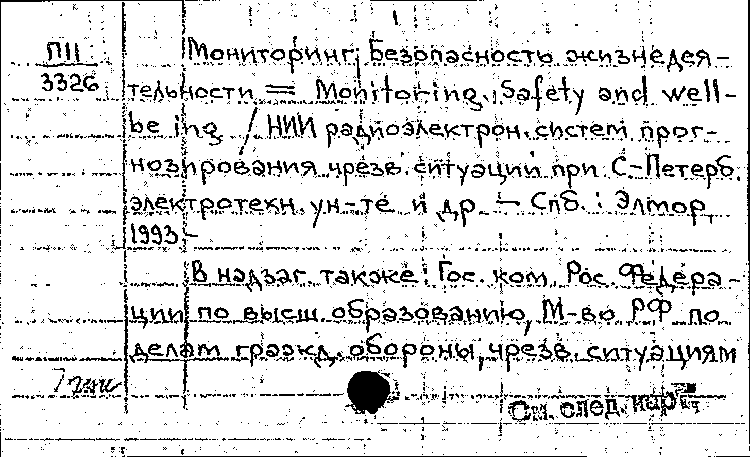 1
П11
3326
Мониторинг. Безопасность жизнедея-
тельности = Monitoring. Safety and well-
being / НИИ радиоэлектрон. систем прог-
нозирования чрезв. ситуаций при С.-Петерб.
электротехн. ун-те и др. - Спб. : Элмор,
1993.-
В надзаг. также: Гос. ком. Рос. Федера-
ции по высш. образованию, М-во РФ по
делам гражд. обороны, чрезв. ситуациям
См. след. карт.